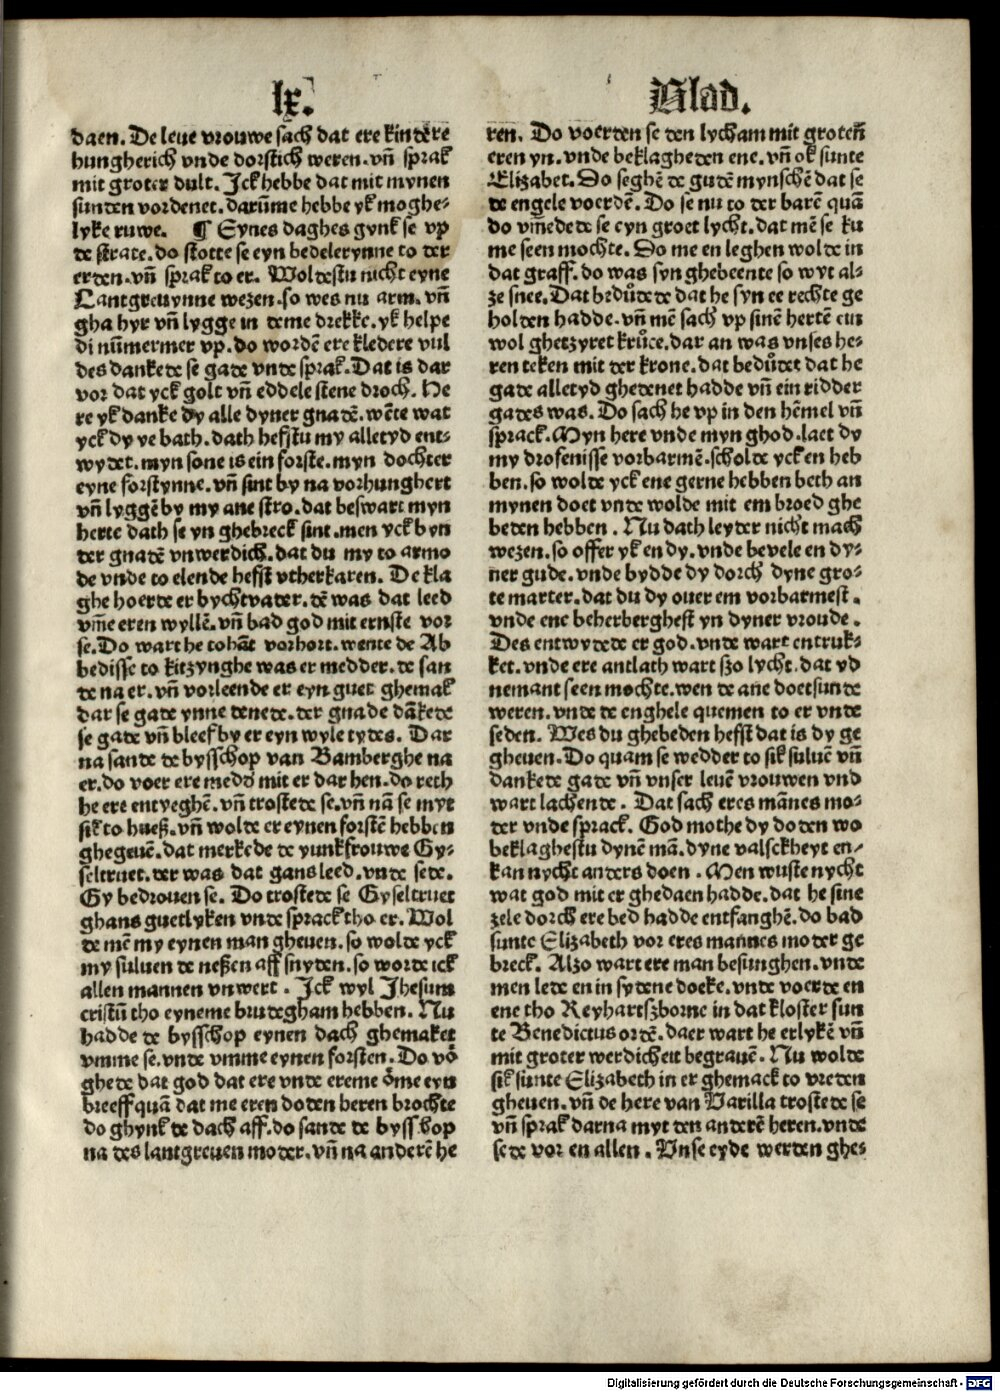 lx.
daen. De leue vrouwe sach dat ere kindere
hungherich vnde dorstich weren. vñ sprak
mit groter dult. Jck hebbe dat mit mynen
sunden vordenet. darũme hebbe yk moghe-
lyke ruwe. ¶ Eynes daghes gynk se vp
de strate. do stotte se eyn bedelerynne to der
erden. vñ sprak to er. Woldestu nicht eyne
Lantgreuynne wezen. so wes nu arm. vñ
gha hyr vñ lygge in deme drekke. yk helpe
di nũmermer vp. do wordẽ ere kledere vul
des dankede se gade vnde sprak. Dat is dar
vor dat yck golt vñ eddele stene droch. He
re yk danke dy alle dyner gnadẽ. wẽte wat
yck dy ye bath. dath hefstu my alletyd ent-
wydet. myn sone is ein forste. myn dochter
eyne forstynne. vñ sint by na vorhunghert
vñ lyggẽ by my ane stro. dat beswart myn
herte dath se yn ghebreck sint. men yck byn
der gnadẽ vnwerdich. dat du my to armo
de vnde to elende hefst vtherkaren. De kla
ghe hoerde er bychtvader. dẽ was dat leed
vm̃e eren wyllẽ. vñ bad god mit ernste vor
se. Do wart he tohãt vorhort. wente de Ab
bedisse to kitzynghe was er medder. de san
de na er. vñ vorleende er eyn guet ghemak
dar se gade ynne denede. der gnade dãkede
se gade vñ bleef by er eyn wyle tydes. Dar
na sande de bysschop van Bamberghe na
er. do voer ere medď mit er dar hen. do reth
he ere entyeghẽ. vñ trostede se. vñ nã se myt
sik to hueß. vñ wolde er eynen forstẽ hebben
ghegeuẽ. dat merkede de yunkfrouwe Gy-
seltruet. der was dat gans leed. vnde sede.
Gy bedrouen se. Do trostede se Gyseltruet
ghans guetlyken vnde sprack tho er. Wol
de mẽ my eynen man gheuen. so wolde yck
my suluen de neßen aff snyden. so worde ick
allen mannen vnwert. Jck wyl Jhesum
cristũ tho eyneme brudegham hebben. Nu
hadde de bysschop eynen dach ghemaket
vmme se. vnde vmme eynen forsten. Do vȏ
ghede dat god dat ere vnde ereme ȏme eyn
breeff quã dat me eren doden heren brochte
do ghynk de dach aff. do sande de bysschop
na des lantgreuen moder. vñ na anderẽ he
Blad.
ren. Do voerden se den lycham mit groteñ
eren yn. vnde beklagheden ene. vñ ok sunte
Elizabet. So seghẽ de gudẽ mynschẽ dat se
de engele voerdẽ. Do se nu to der barẽ quã
do vm̃edede se eyn groet lycht. dat mẽ se ku
me seen mochte. So me en leghen wolde in
dat graff. do was syn ghebeente so wyt al-
ze snee. Dat bedůdede dat he syn ee rechte ge
holden hadde. vñ mẽ sach vp sinẽ hertẽ ein
wol ghetzyret krůce. dar an was vnses he-
ren teken mit der krone. dat bedůdet dat he
gade alletyd ghedenet hadde vñ ein ridder
gades was. Do sach he vp in den hẽmel vñ
sprack. Myn here vnde myn ghod. laet dy
my drofenisse vorbarmẽ. scholde yck en heb
ben. so wolde yck ene gerne hebben beth an
mynen doet vnde wolde mit em broed ghe
beden hebben. Nu dath leyder nicht mach
wezen. so offer yk en dy. vnde bevele en dy-
ner gude. vnde bydde dy dorch dyne gro-
te marter. dat du dy ouer em vorbarmest.
vnde ene beherberghest yn dyner vroude.
Des entwydede er god. vnde wart entruk-
ket. vnde ere antlath wart szo lycht. dat yd
nemant seen mochte. wen de ane doetsunde
weren. vnde de enghele quemen to er vnde
seden. Wes du ghebeden hefst dat is dy ge
gheuen. Do quam se wedder to sik suluẽ vñ
dankede gade vñ vnser leuẽ vrouwen vnd
wart lachende. Dat sach eres mãnes mo-
der vnde sprack. God mothe dy doden wo
beklaghestu dynẽ mã. dyne valsckheyt en-
kan nycht anders doen. Men wuste nycht
wat god mit er ghedaen hadde. dat he sine
zele dorch ere bed hadde entfanghẽ. do bad
sunte Elizabeth vor eres mannes moder ge
breck. Alzo wart ere man besunghen. vnde
men lede en in sydene doeke. vnde voerde en
ene tho Reyhartszborne in dat kloster sun
te Benedictus ordẽ. daer wart he erlykẽ vñ
mit groter werdicheit begrauẽ. Nu wolde
sik sunte Elizabeth in er ghemack to vreden
gheuen. vñ de here van Varilla trostede se
vñ sprak darna myt den anderẽ heren. vnde
sede vor en allen. Vnse eyde werden ghe-
Digitalisierung gefördert durch die Deutsche Forschungsgemeinschaft - DFG